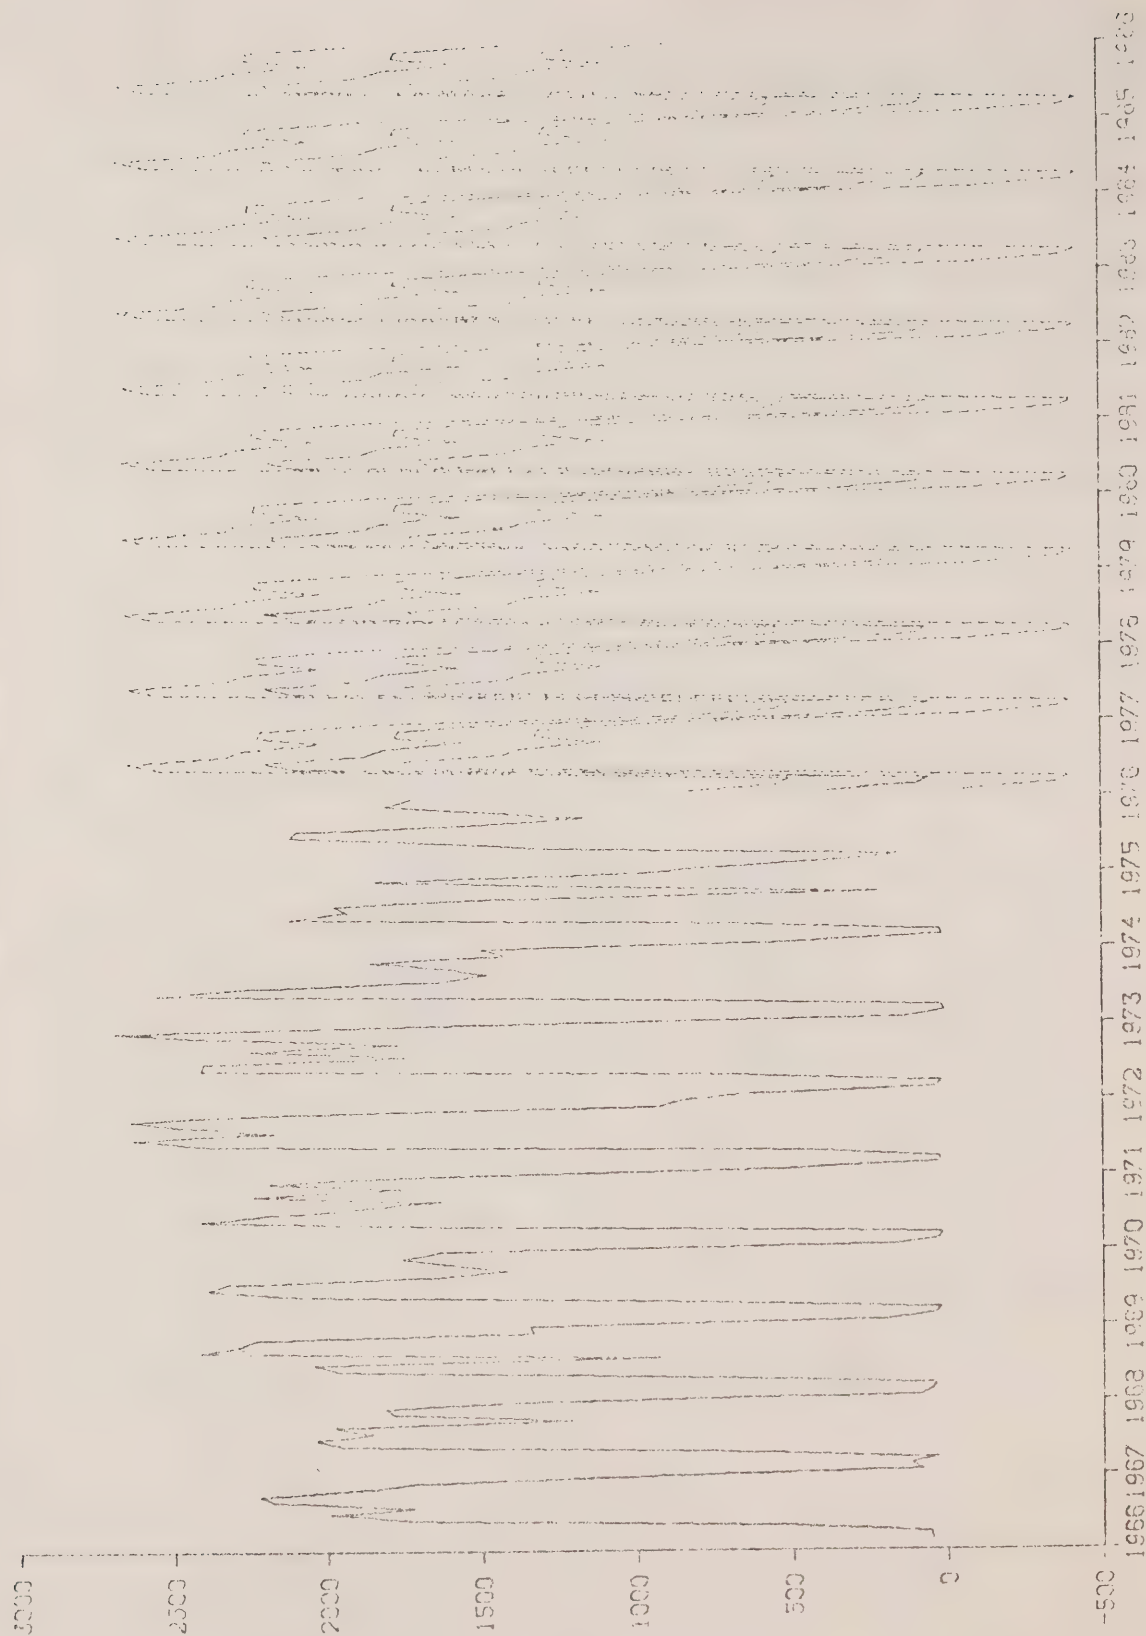 3000
2500
2000
1500
1000
500
0
-500
1966 1967 1968 1969 1970 1971 1972 1973 1974 1975 1976 1977 1978 1979 1980 1981 1982 1983 1984 1985 1986